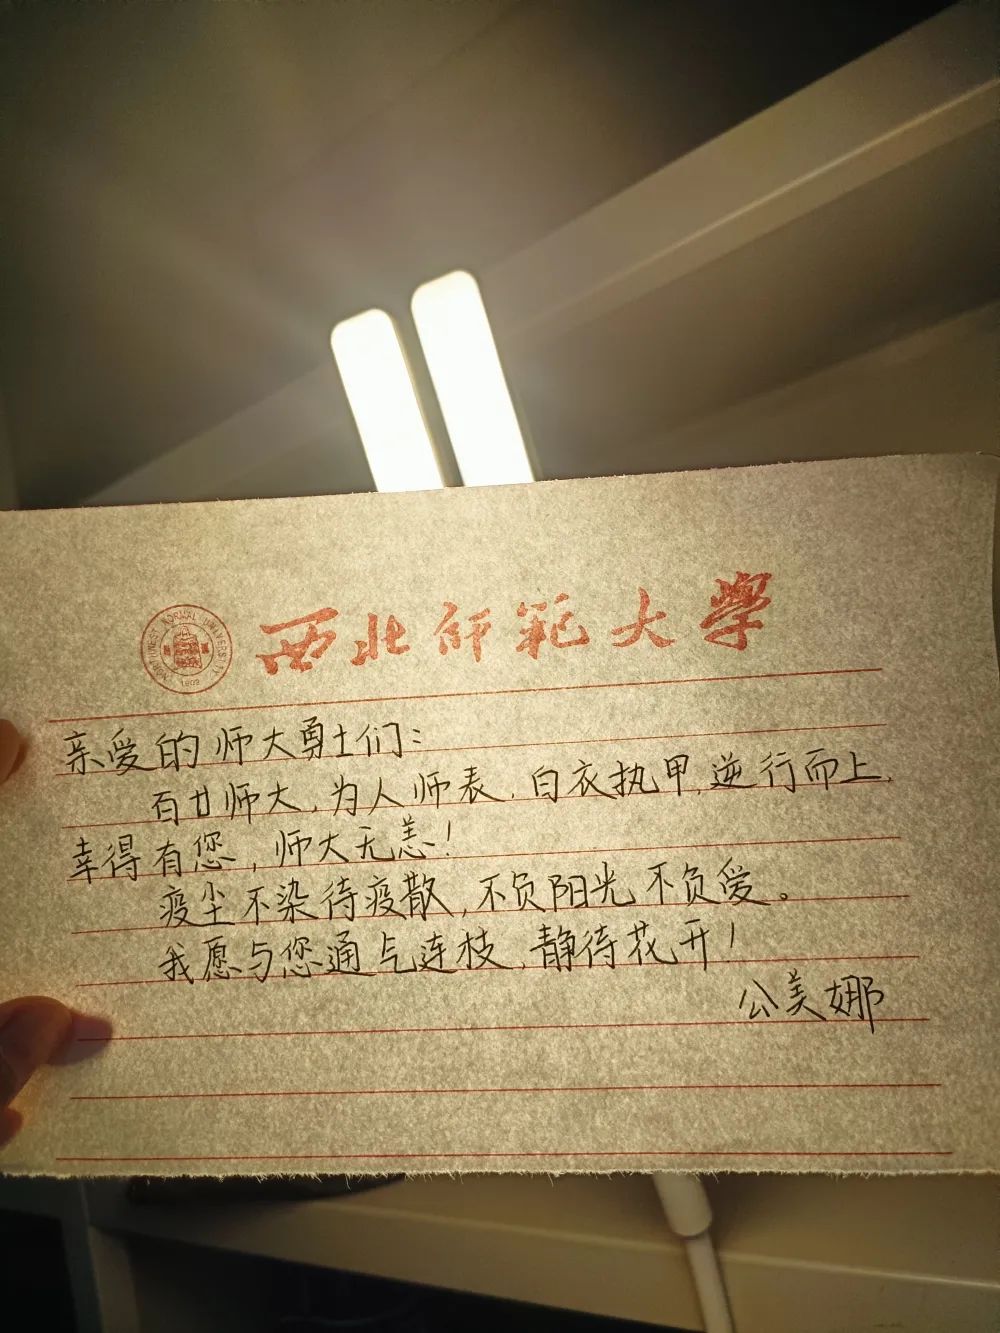 NORTHWEST NORMAL UNIVERSITY
1902
西北师范大学
亲爱的师大勇士们:
百廿师大,为人师表,白衣执甲,逆行而上,
幸得有您,师大无恙!
疫尘不染待疫散,不负阳光不负爱。
我愿与您通气连枝,静待花开!
公美娜